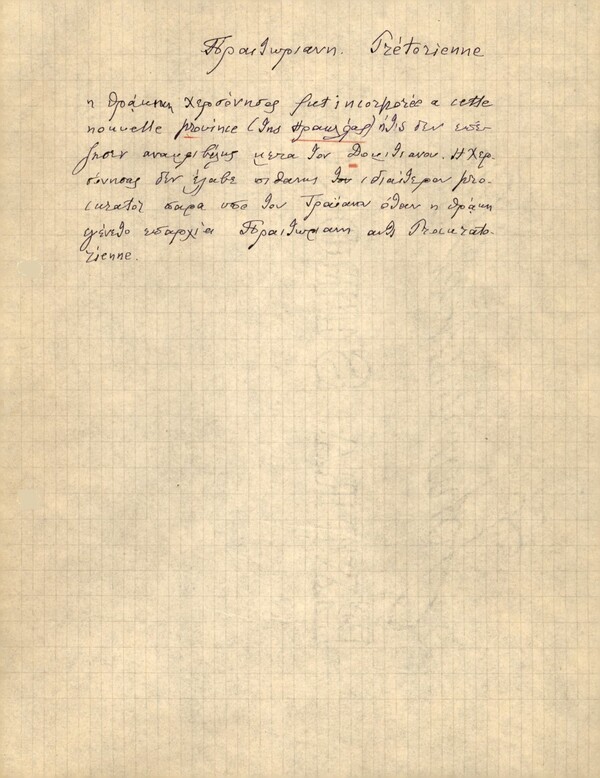 Πραιτωριανη. Prétorienne
η θράκικη Χερσόνησος fut incorporée a cette
nouvelle province (της Ηρακλέας) ήτις δεν επέ-
ζησεν ανακριβώς μετα τον Δομιτιανον. Η Χερ-
σόνησος δεν έλαβε πιθανως ιδιαίτερον pro-
curator παρα υπο τον Τραϊανον όταν η θράκη
γένετο επαρχία Πραιτωριανη αντι Procurato-
rienne.